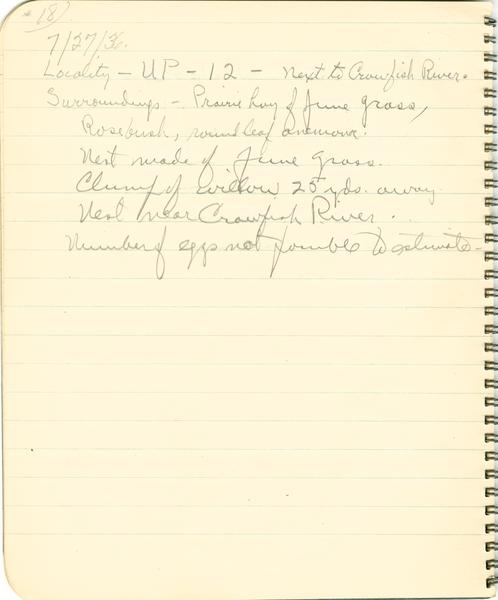 # 18)
7/27/36.
Locality - UP - 12 - next to Crawfish River.
Surroundings - Prairie hay of June grass,
Rosebush, round leaf anemone.
Nest made of June Grass.
Clump of willow 25 yds. away
Nest near Crawfish River.
Number of eggs not possible to estimate -